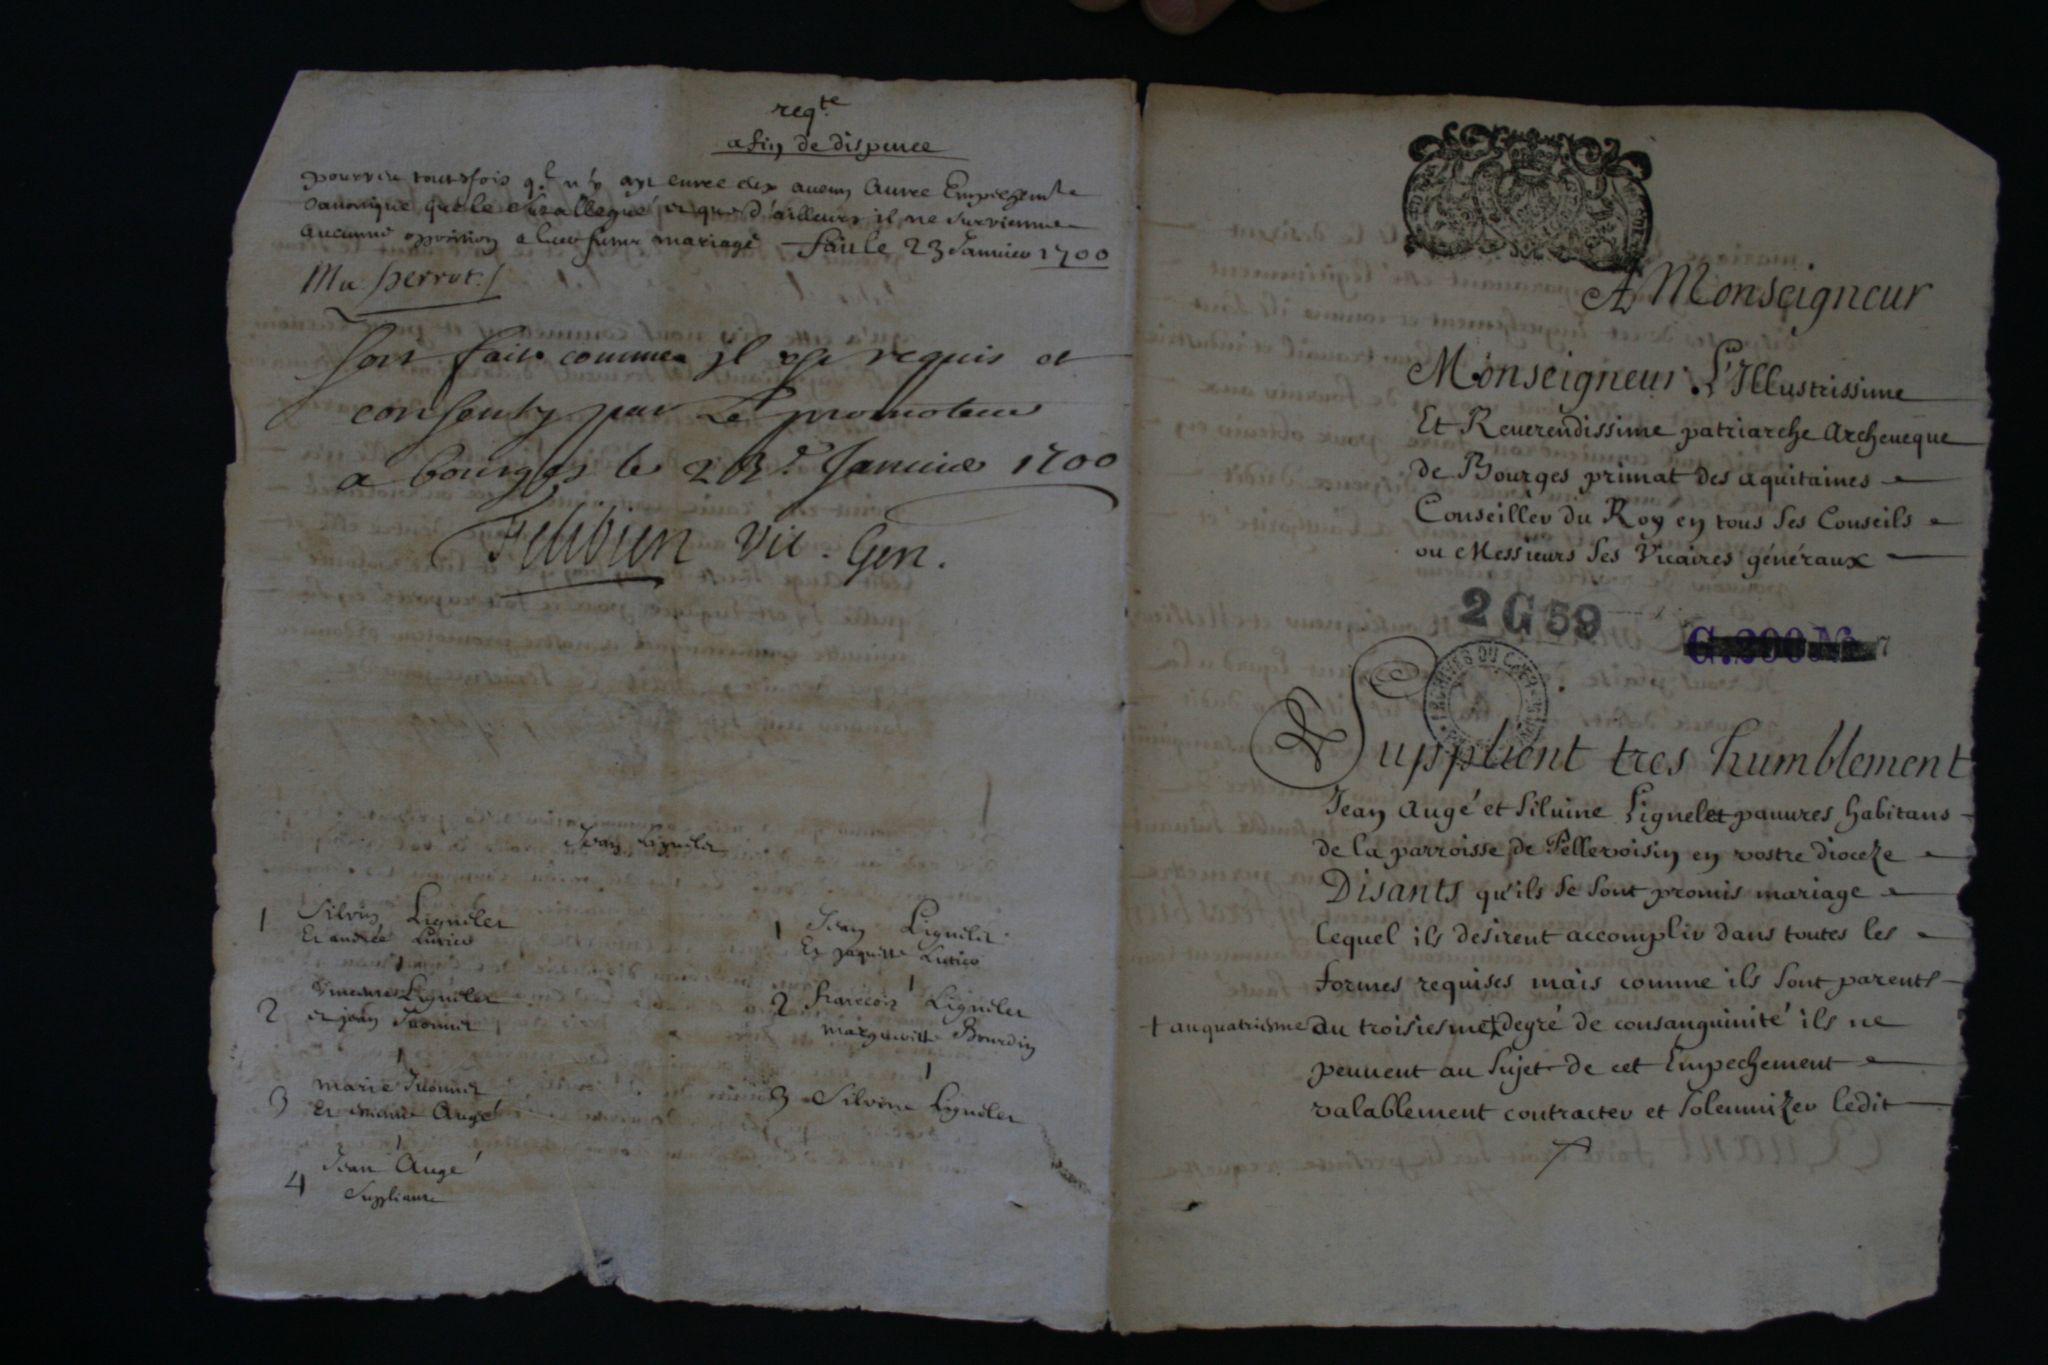 reqte
afin de dispence
pourveu toutesfois q'l n'y ayt entre eux aucun autre Empeschemte
canonique que le susallegué et que d'ailleurs il ne survienne
aucune opposition a leur futur mariage fait le 23 Janvier 1700
Perrot
soit faite comme il est requis et
consenty par Le promoteur
a bourges le 23e Janvier 1700
Felibien Vic. Gen.
Jean Lignelet
1 Silvin Lignelet
Et andrée
2 Lignelet
et jean
3 marie
Et Augé
4 Jean Augé
Suppliant
1 Jean Lignelet
Et
2 francois Lignelet
margueritte Bourdin
3 Silvine Lignelet
A Monseigneur
Monseigneur L'Illustrissime
Et Reuerendissime patriarche Archeueque
de Bourges primat des aquitaines
Conseiller du Roy en tous ses Conseils
ou Messieurs ses Vicaires généraux
2 G 59
ARCHIVES DU CHER
Supplient tres humblement
Jean Augé et Siluine Lignelet pauures habitans
de la parroisse de Pellevoisin en vostre dioceze
Disants qu'ils se sont promis mariage
lequel ils desirent accomplir dans toutes les
formes requises mais comme ils sont parents
+ au quatriesme
du troisiesme + degré de consanguinité ils ne
peuuent au sujet de cet Empechement
valablement contracter et solemnizer ledit